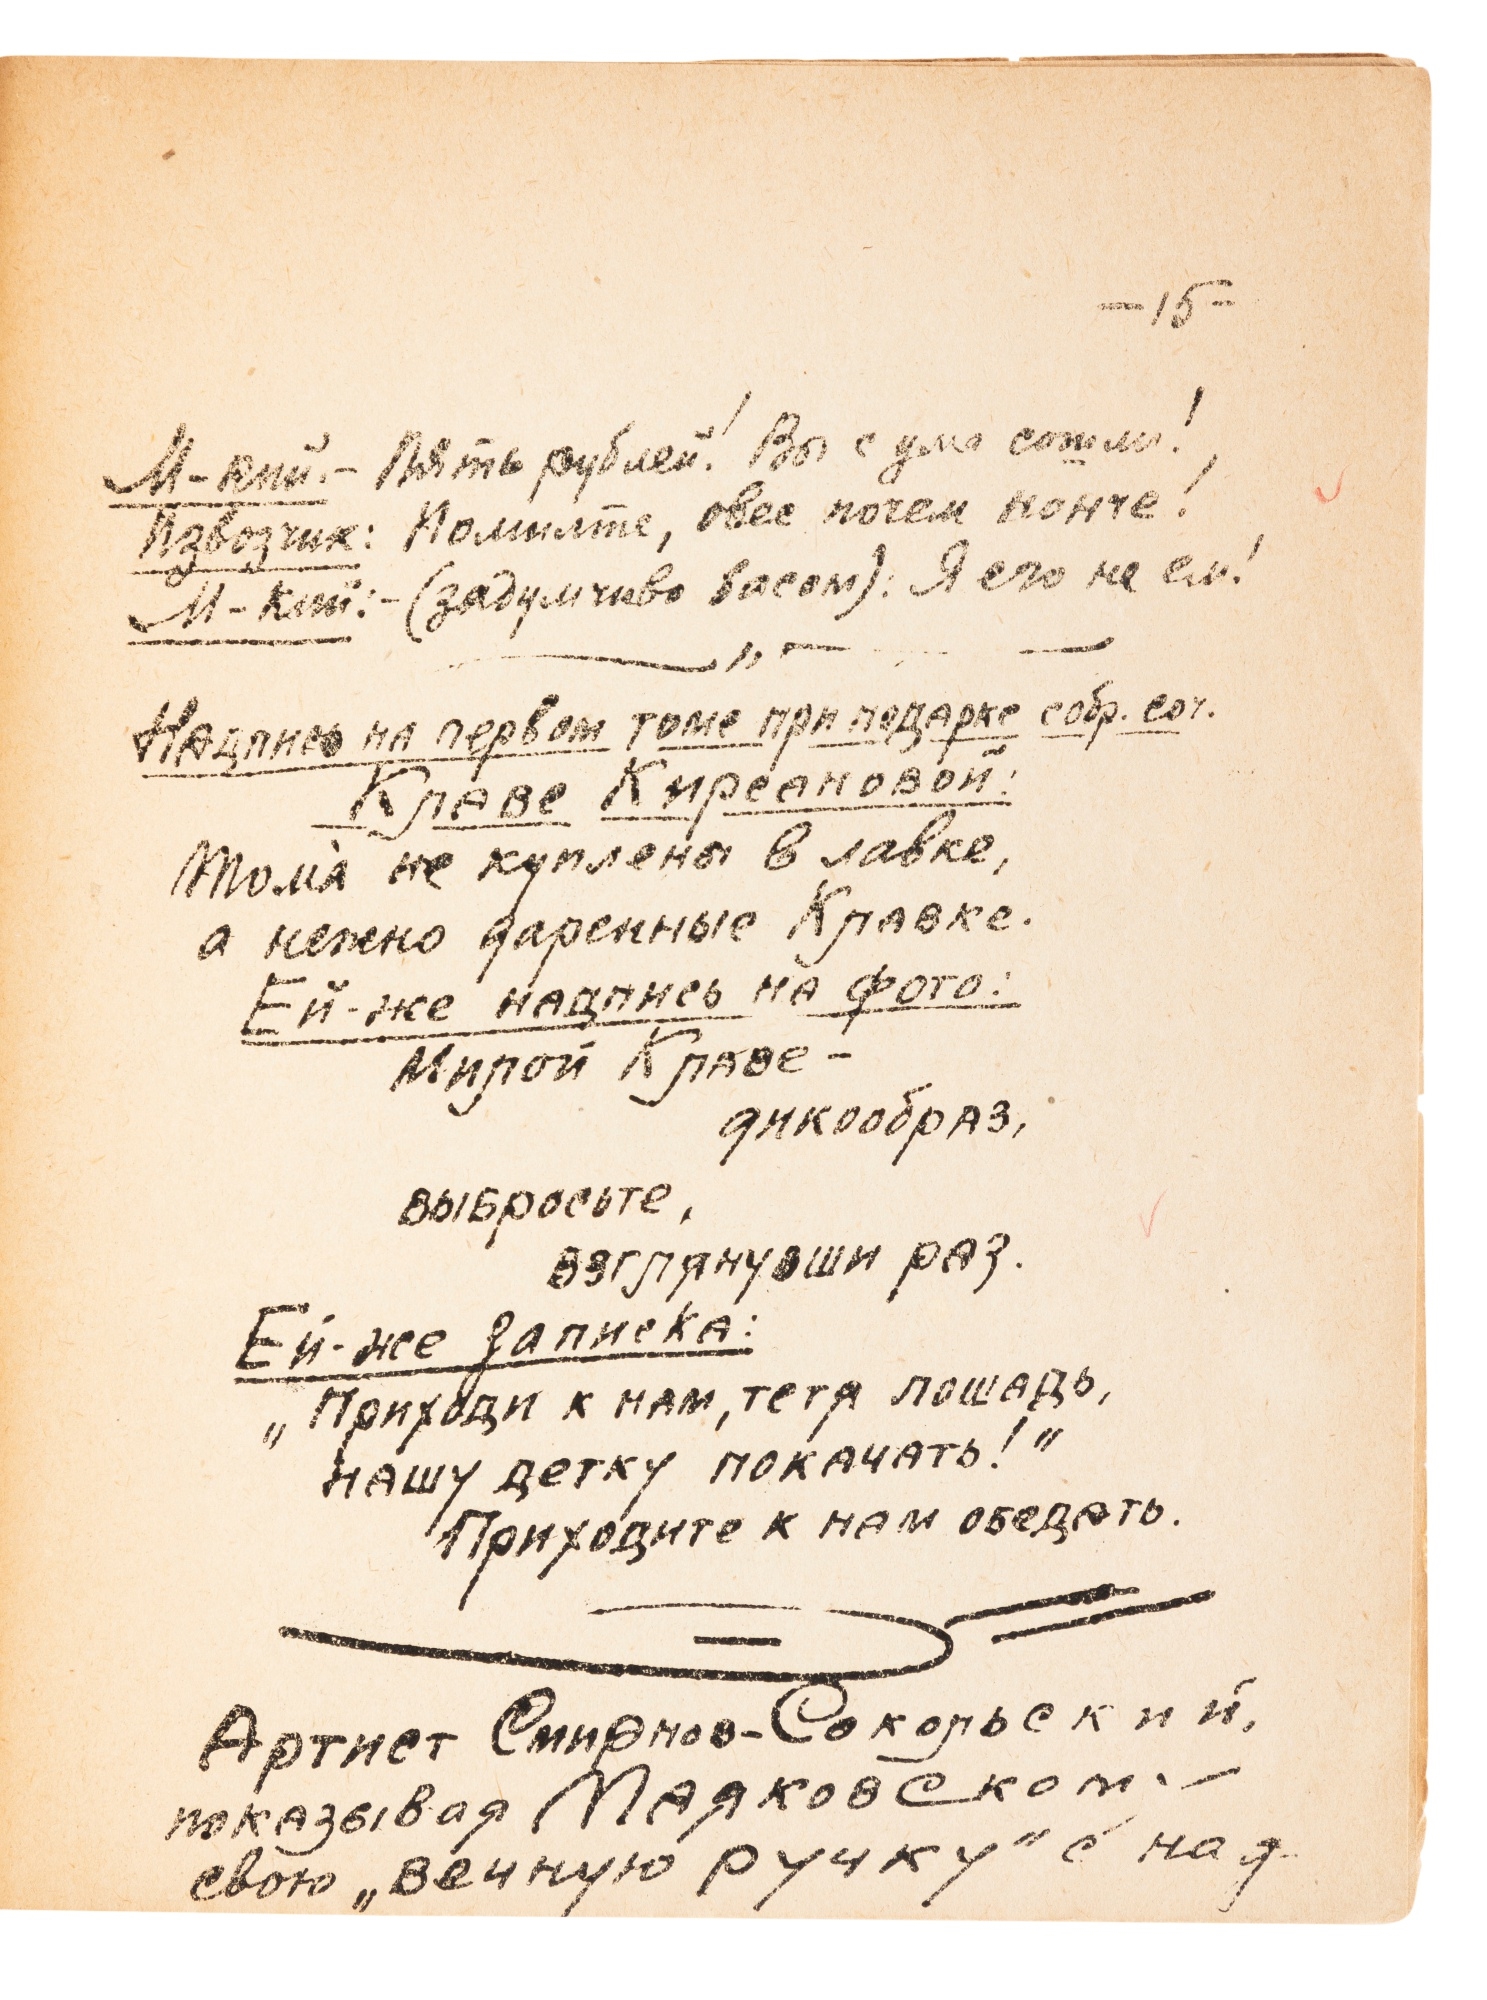 -15-
М-кий:- Пять рублей! Вы с ума сошли!
Извозчик: Помилте, овес почем нонче!
М-кий:- (задумчиво басом): Я его не ем!
Надпись на первом томе при подарке собр. соч.
Клаве Кирсановой:
Тома не куплены в лавке,
а нежно даренные Клавке.
Ей-же надпись на фото:
Милой Клаве -
дикообраз,
выбросьте,
взглянувши раз.
Ей-же записка:
„Приходи к нам, тетя лошадь,
нашу детку покачать!"
Приходите к нам обедать.
Артист Смирнов-Сокольский,
показывая Маяковском
свою „вечную ручку" с над